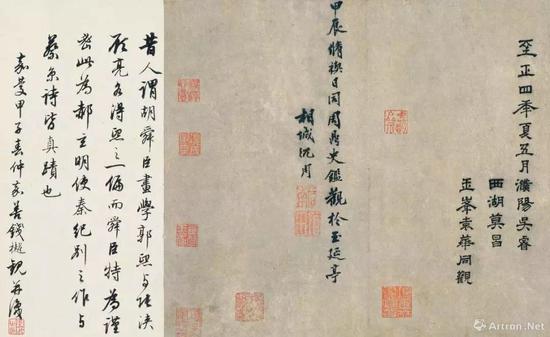 至正四年夏五月濮陽吳睿
西湖莫昌
玉峯袁華同觀
甲辰脩禊日同周鼎史鑑觀於玉延亭
相城沈周
昔人謂胡舜臣畫學郭熙与張浹
顧亮各得熙之一偏而舜臣特為謹
密此為郝玄明使秦紀別之作与
蔡京詩皆真蹟也
嘉慶甲子春仲嘉善錢樾觀并識
Artron.Net